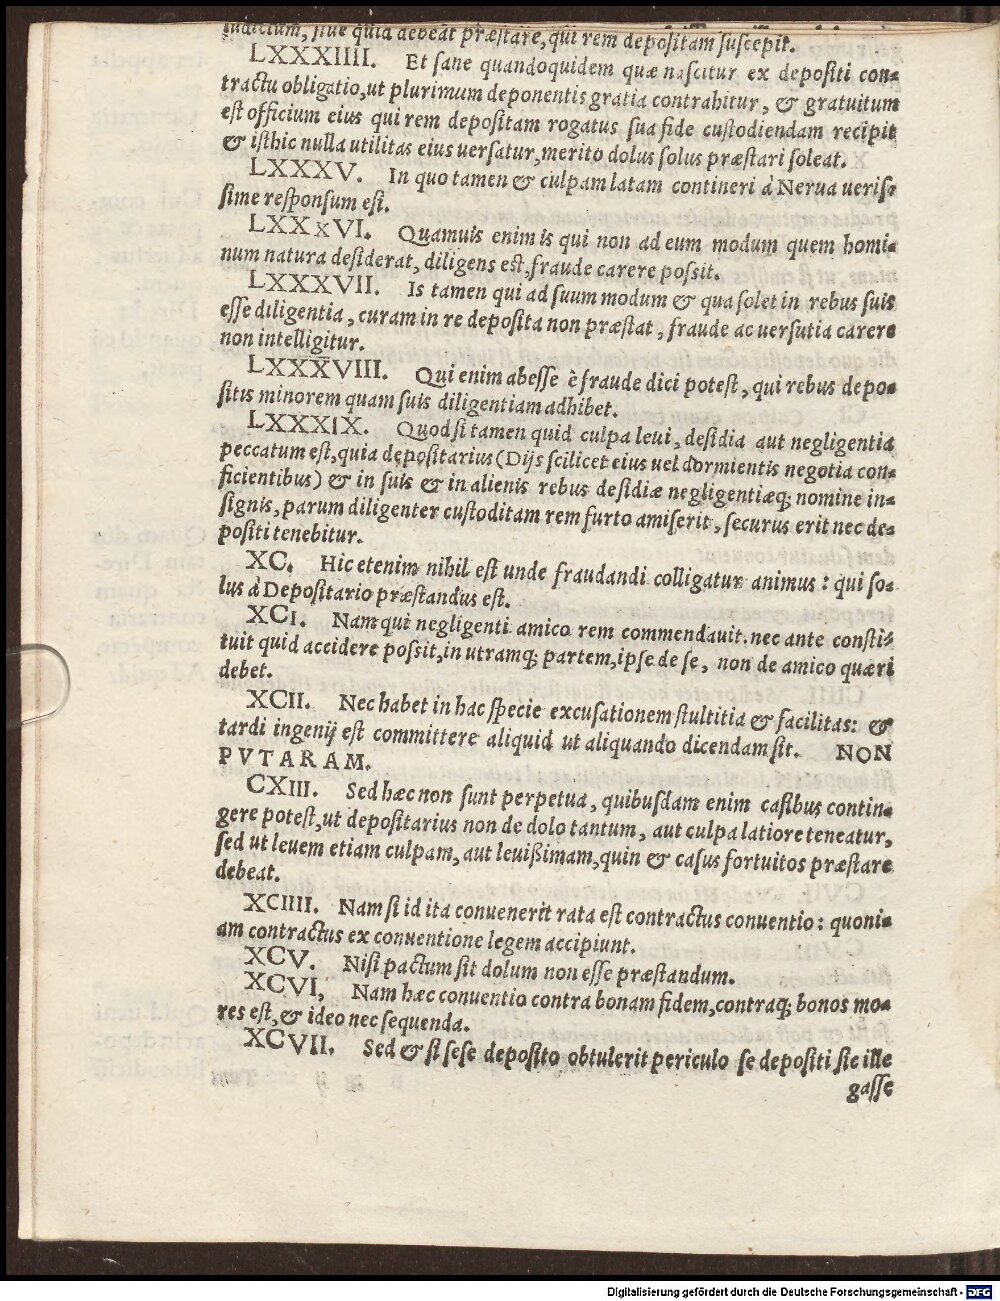 iudicium, siue quia debeat præstare, qui rem depositam suscepit.
LXXXIIII. Et sane quandoquidem quæ nascitur ex depositi con-
tractu obligatio, ut plurimum deponentis gratia contrahitur, & gratuitum
est officium eius qui rem depositam rogatus sua fide custodiendam recipit
& isthic nulla utilitas eius uersatur, merito dolus solus præstari soleat.
LXXXV. In quo tamen & culpam latam contineri à Nerua ueris-
sime responsum est.
LXXxVI. Quamuis enim is qui non ad eum modum quem homi-
num natura desiderat, diligens est, fraude carere possit.
LXXXVII. Is tamen qui ad suum modum & qua solet in rebus suis
esse diligentia, curam in re deposita non præstat, fraude ac uersutia carere
non intelligitur.
LXXXVIII. Qui enim abesse è fraude dici potest, qui rebus depo-
sitis minorem quam suis diligentiam adhibet.
LXXXIX. Quod si tamen quid culpa leui, desidia aut negligentia
peccatum est, quia depositarius (Dijs scilicet eius uel dormientis negotia con-
ficientibus) & in suis & in alienis rebus desidiæ negligentiæq; nomine in-
signis, parum diligenter custoditam rem furto amiserit, securus erit nec de-
positi tenebitur.
XC. Hic etenim nihil est unde fraudandi colligatur animus: qui so-
lus à Depositario præstandus est.
XCI. Nam qui negligenti amico rem commendauit. nec ante consti-
tuit quid accidere possit, in utramq; partem, ipse de se, non de amico quæri
debet.
XCII. Nec habet in hac specie excusationem stultitia & facilitas: &
tardi ingenij est committere aliquid ut aliquando dicendam sit. NON
PVTARAM.
CXIII. Sed hæc non sunt perpetua, quibusdam enim casibus contin-
gere potest, ut depositarius non de dolo tantum, aut culpa latiore teneatur,
sed ut leuem etiam culpam, aut leuißimam, quin & casus fortuitos præstare
debeat.
XCIIII. Nam si id ita conuenerit rata est contractus conuentio: quoni-
am contractus ex conuentione legem accipiunt.
XCV. Nisi pactum sit dolum non esse præstandum.
XCVI, Nam hæc conuentio contra bonam fidem, contraq; bonos mo-
res est, & ideo nec sequenda.
XCVII. Sed & si sese deposito obtulerit periculo se depositi sic ille
gasse
Digitalisierung gefördert durch die Deutsche Forschungsgemeinschaft - DFG